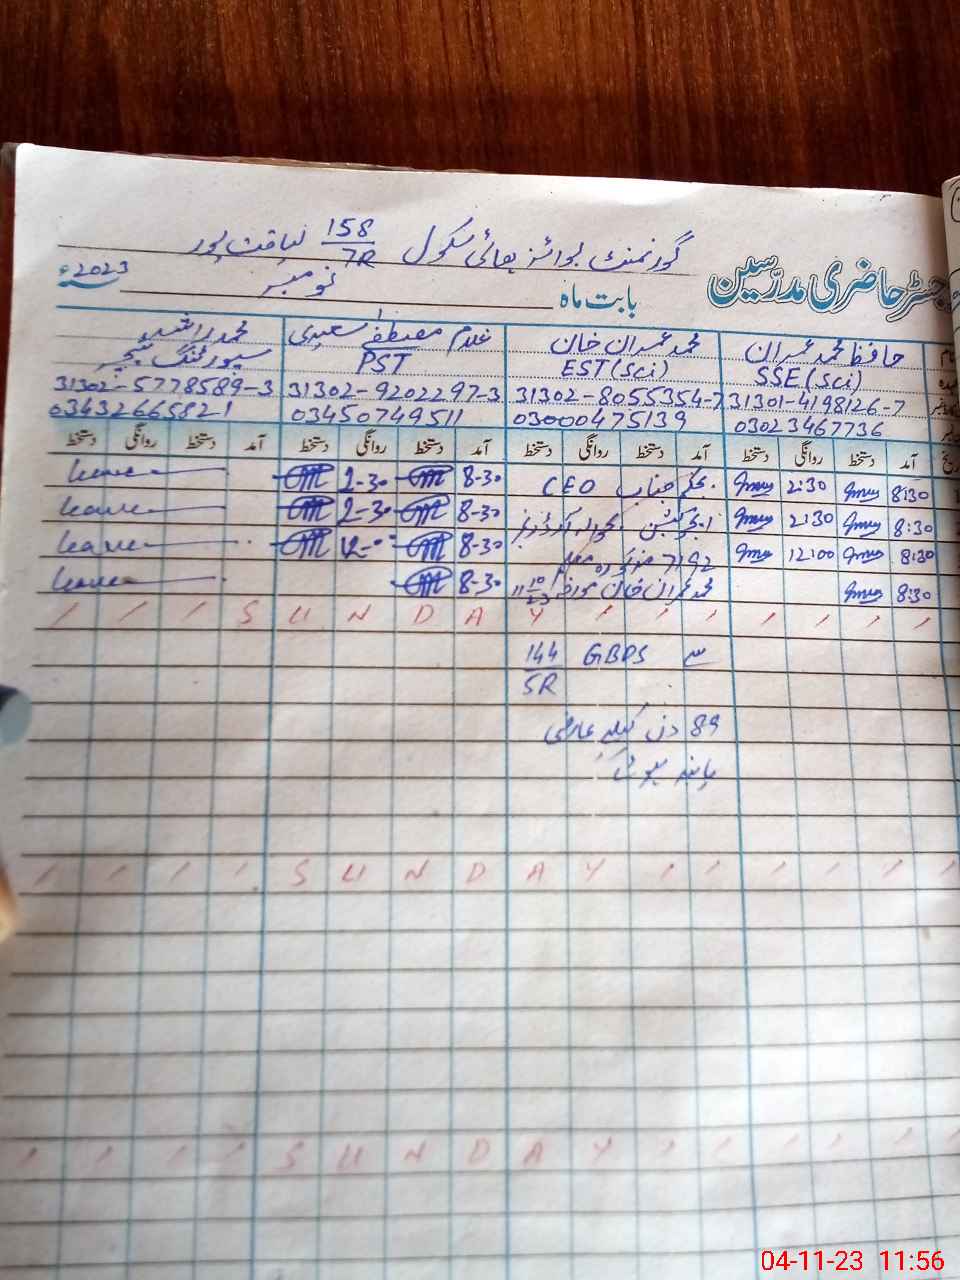 گورنمنٹ بوائز ہائی سکول 158/7R لیاقت پور
رجسٹر حاضری مدرسین بابت ماہ نومبر 2023ء
حافظ محمد عمران محمد عمران خان غلام مصطفےٰ سعیدی محمد راشد
SSE (Sci) EST (Sci) PST سپورٹنگ ٹیچر
31301-4198126-7 31302-8055354-7 31302-9202297-3 31302-5778589-3
03023467736 03000475139 03450749511 03432665821
آمد دستخط روانگی دستخط آمد دستخط روانگی دستخط آمد دستخط روانگی دستخط آمد دستخط روانگی دستخط
8:30 2:30 بحکم جناب CEO 8-30 2-30 leave
8:30 2:30 ایجوکیشن بحوالہ آرڈر نمبر 8-30 2-30 leave
8:30 12:00 7192 8-30 12-00 leave
8:30 محمد عمران خان مورخہ 11/10/23 8-30 leave
S U N D A Y
سے GBPS 144/5R
89 دن کیلئے عارضی
S U N D A Y
S U N D A Y
04-11-23 11:56